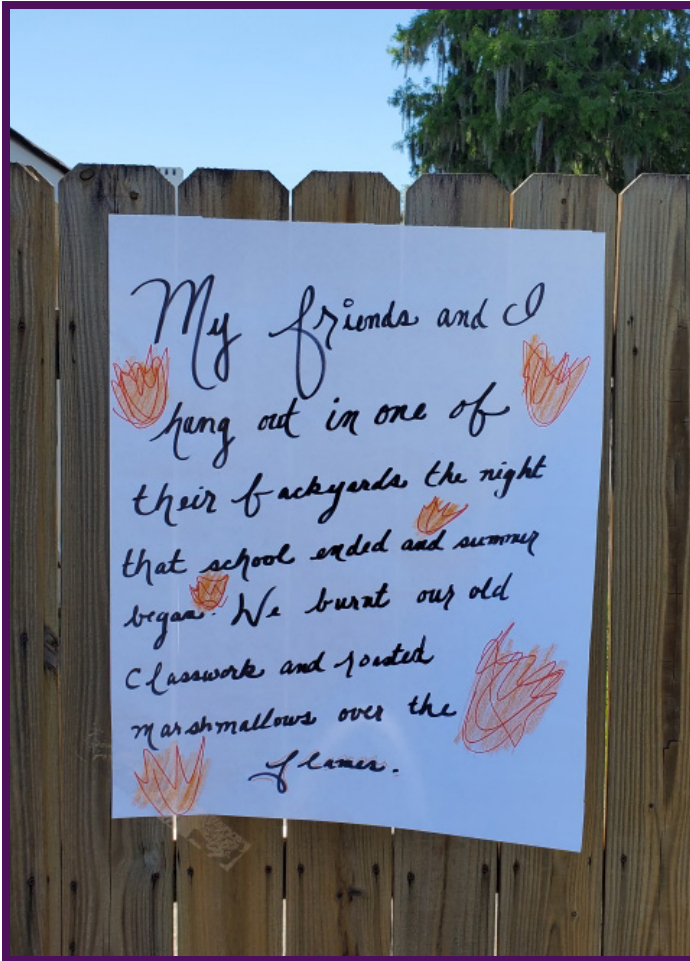 My friends and I
hang out in one of
their backyards the night
that school ended and summer
began. We burnt our old
Classwork and roasted
marshmallows over the
flames.